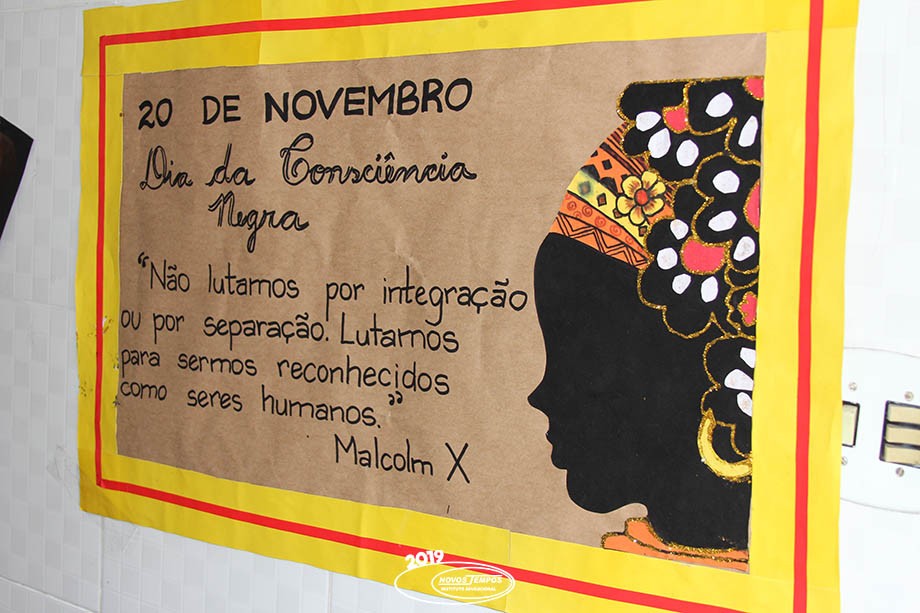 20 DE NOVEMBRO
Dia da Consciência
Negra
"Não lutamos por integração
ou por separação. Lutamos
para sermos reconhecidos
como seres humanos."
Malcolm X
2019
NOVOS TEMPOS
INSTITUTO EDUCACIONAL